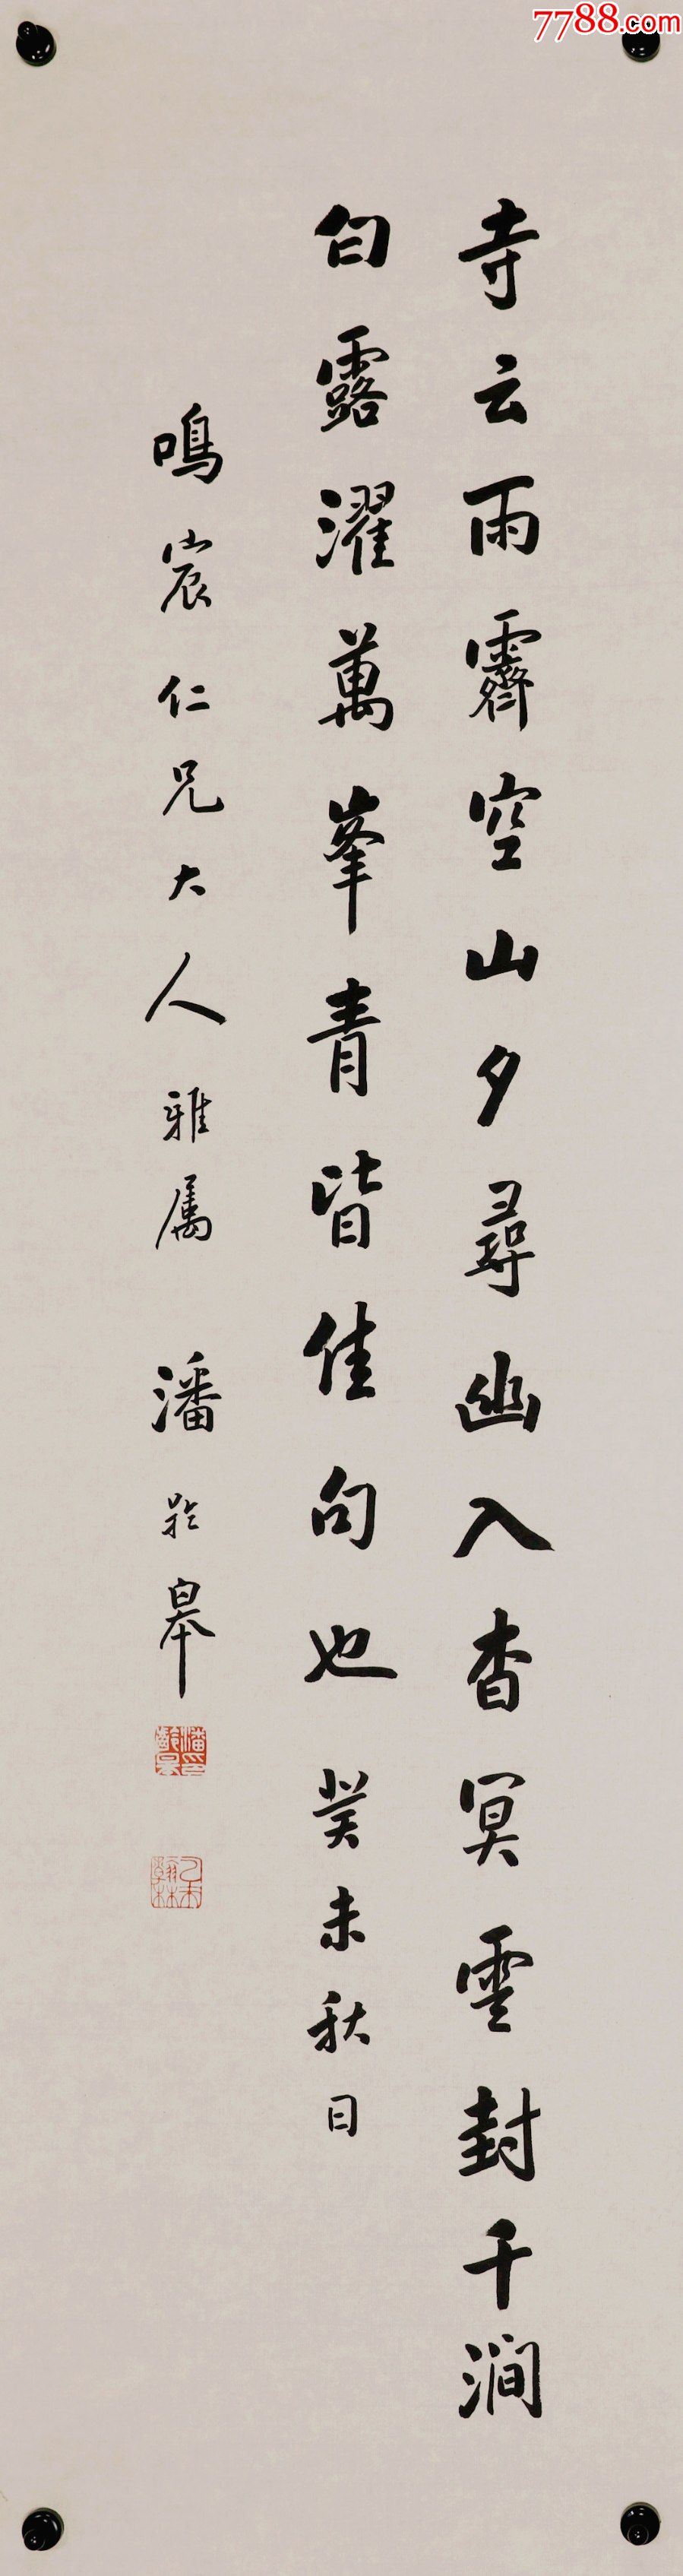 7788.com
寺云雨霽空山夕尋幽入杳冥雲封千澗
白露濯萬峯青皆佳句也 癸未秋日
鳴宸仁兄大人雅属 潘龄皋
潘印龄皋
乙未翰林